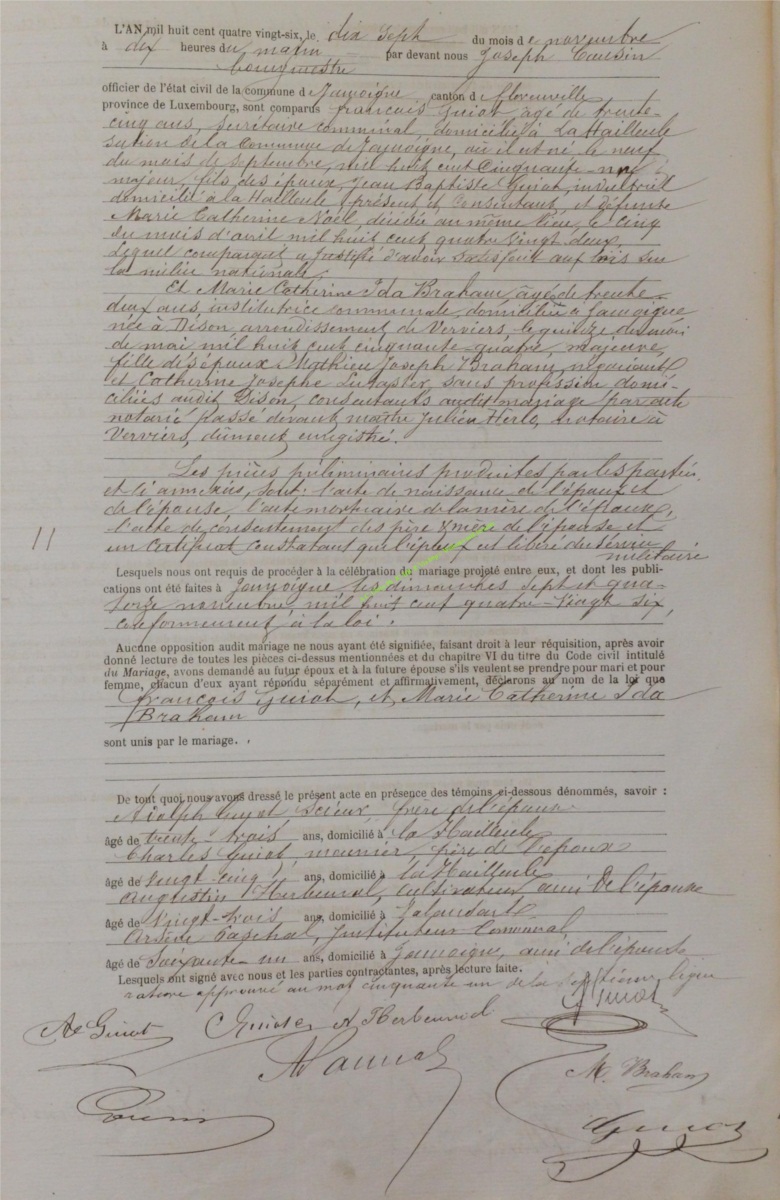 L'AN mil huit cent quatre vingt-six, le dix sept du mois de novembre
à dix heures du matin par devant nous Joseph
bourgmestre
officier de l'état civil de la commune d Jamoigne canton d Florenville
province de Luxembourg, sont comparus françois Guiot âgé de trente-
cinq ans, secrétaire communal, domicilié à La Hailleule
section de la commune de Jamoigne, où il est né le neuf
du mois de septembre, mil huit cent cinquante-un
majeur, fils des époux, Jean Baptiste Guiot, industriel
domicilié à la Hailleule, présent et consentant, et défunte
Marie Catherine Noël, décédée au même lieu, le cinq
du mois d'avril mil huit cent quatre vingt deux,
Lequel comparant a justifié d'avoir satisfait aux lois sur
la milice nationale.
Et Marie Catherine Ida Braham, âgée de trente-
deux ans, institutrice communale, domiciliée à Jamoigne
née à Dison, arrondissement de Verviers, le quinze du mois
de mai mil huit cent cinquante-quatre, majeure,
fille des époux Mathieu Joseph Braham, négociant
et Catherine Josephe sans profession domi-
ciliés audit Dison, consentants audit mariage par acte
notarié passé devant maître Julien Herlo, notaire à
Verviers, dument enregistré.
Les pièces préliminaires produites par les parties
et ci annexées, sont: l'acte de naissance de l'époux et
de l'épouse, l'acte mortuaire de la mère de l'époux,
l'acte de consentement des père & mère de l'épouse et
11
un certificat constatant que l'époux est libéré du service
militaire
Lesquels nous ont requis de procéder à la célébration du mariage projeté entre eux, et dont les publi-
cations ont été faites à Jamoigne les dimanches sept et qua-
torze novembre, mil huit cent quatre-vingt six,
conformément à la loi.
Aucune opposition audit mariage ne nous ayant été signifiée, faisant droit à leur réquisition, après avoir
donné lecture de toutes les pièces ci-dessus mentionnées et du chapitre VI du titre du Code civil intitulé
du Mariage, avons demandé au futur époux et à la future épouse s'ils veulent se prendre pour mari et pour
femme, chacun d'eux ayant répondu séparément et affirmativement, déclarons au nom de la loi que
François Guiot, et Marie Catherine Ida
Braham
sont unis par le mariage.
De tout quoi nous avons dressé le présent acte en présence des témoins ci-dessous dénommés, savoir :
Adolph Guyot Scieur, frère de l'époux
âgé de trente-trois ans, domicilié à la Hailleule
Charles Guiot, meunier, frère de l'époux
âgé de vingt-cinq ans, domicilié à la Hailleule
Augustin Herbeuval, cultivateur, ami de l'épouse
âgé de vingt-trois ans, domicilié à
Arsène Paschal, Instituteur Communal,
âgé de soixante-un ans, domicilié à Jamoigne, ami de l'épouse
Lesquels ont signé avec nous et les parties contractantes, après lecture faite.
rature approuvé au mot cinquante un de la septième ligne
Guiot
Ad Guiot
CGuiot
A Herbeuval
M. Braham
Guiot